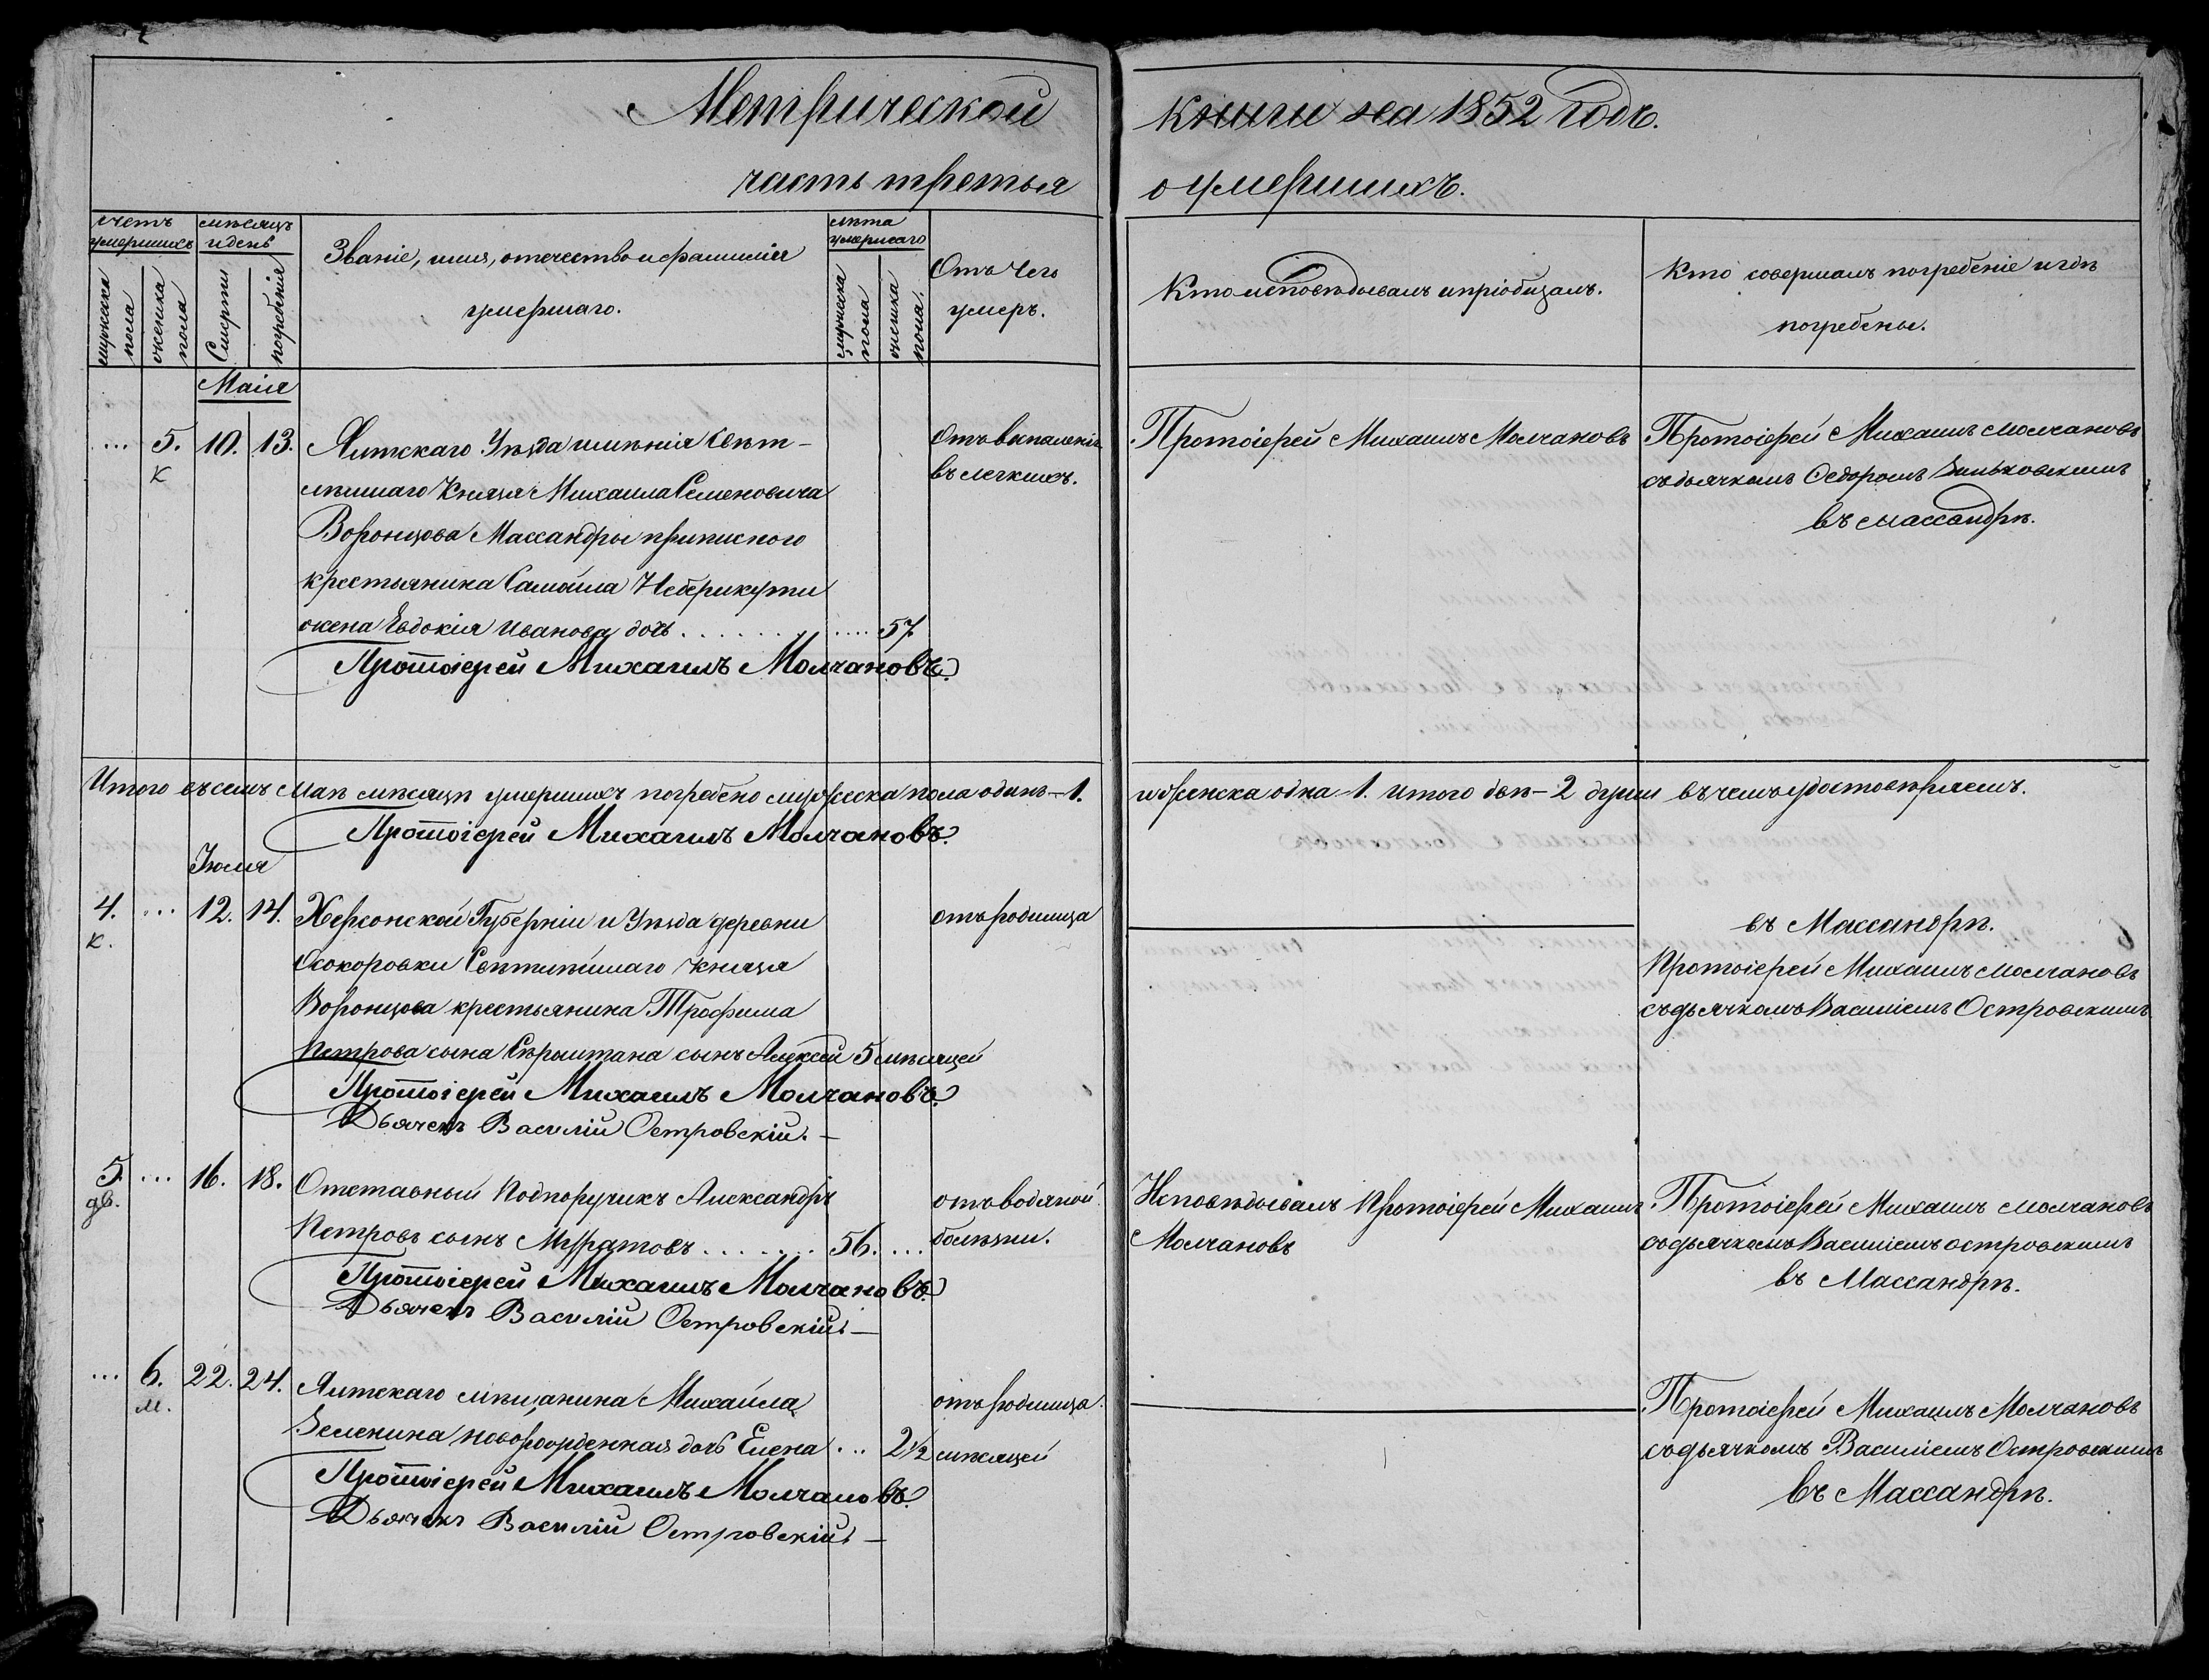 Метрической книги на 1852 годъ.
часть третья о умершихъ.
счетъ умершихъ
мужеска пола
женска пола
мѣсяцъ и день
Смерти
погребенія
Званіе, имя, отечество и фамилія
умершаго.
лѣта умершаго
мужеска пола
женска пола.
Отъ чего
умеръ.
Кто исповѣдывалъ и пріобщалъ.
Кто совершалъ погребеніе и гдѣ
погребены.
Маія
... 5. 10. 13.
к
Ялтскаго Уѣзда имѣнія Свѣт-
лѣйшаго Князя Михаила Семеновича
Воронцова Массандры приписного
крестьянина Самойла Неберикути
жена Евдокія Иванова дочь . . . . . . . . . . . 57
Отъ воспаленія
въ легкихъ.
Протоіерей Михаилъ Молчановъ
Протоіерей Михаилъ Молчановъ
съ дьячкомъ Федоромъ Зиньковскимъ
въ Массандрѣ.
Протоіерей Михаилъ Молчановъ.
Итого въ семъ Маѣ мѣсяцѣ умершихъ погребено мужеска пола одинъ-1. и женска одна-1. итого двѣ-2 души въ чемъ удостовѣряемъ.
Протоіерей Михаилъ Молчановъ.
Іюля
4. ... 12. 14.
к.
Херсонской Губерніи и Уѣзда деревни
Свѣтлѣйшаго Князя
Воронцова крестьянина Трофима
Петрова сына сынъ Алексей 5 мѣсяцей
отъ родимца
въ Массандрѣ.
Протоіерей Михаилъ Молчановъ
съ дьячкомъ Василіемъ Островскимъ
Протоіерей Михаилъ Молчановъ.
Дьячекъ Василій Островскій.
5 ... 16. 18.
дв.
Отставный Подпоручикъ Александръ
Петровъ сынъ Муратовъ . . . . . . . 56. ...
отъ водяной
болѣзни.
Исповѣдывалъ Протоіерей Михаилъ
Молчановъ
Протоіерей Михаилъ Молчановъ
съ дьячкомъ Василіемъ Островскимъ
въ Массандрѣ.
Протоіерей Михаилъ Молчановъ.
Дьячекъ Василій Островскій.
... 6. 22. 24.
м.
Ялтскаго мѣщанина Михайла
Зеленина новорожденная дочь Елена ... 2½ мѣсяцей
отъ родимца.
Протоіерей Михаилъ Молчановъ
съ дьячкомъ Василіемъ Островскимъ
въ Массандрѣ.
Протоіерей Михаилъ Молчановъ.
Дьячекъ Василій Островскій.